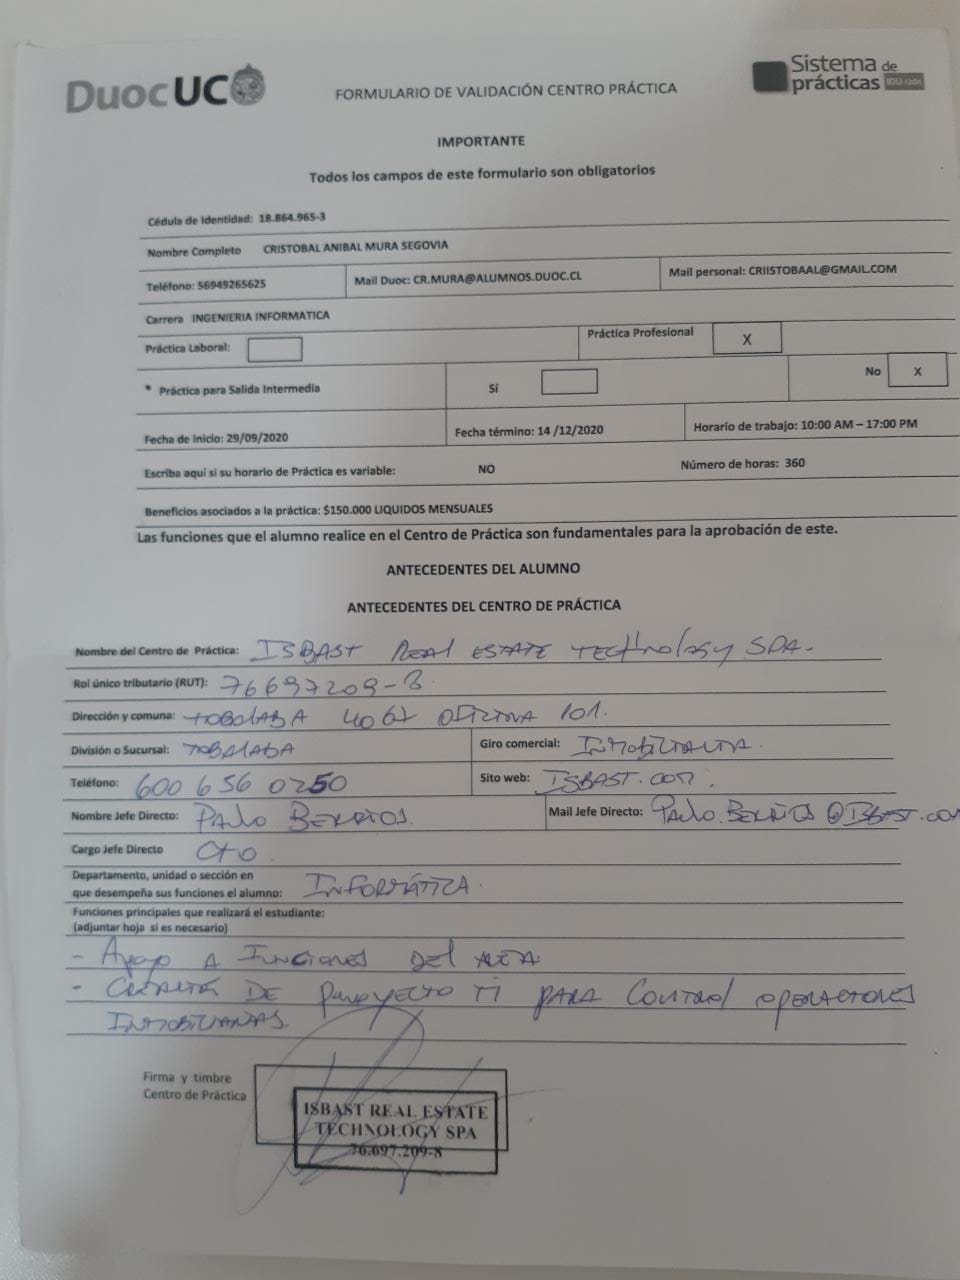 Duoc UC
FORMULARIO DE VALIDACIÓN CENTRO PRÁCTICA
Sistema de prácticas IDU 1201
IMPORTANTE
Todos los campos de este formulario son obligatorios
Cédula de Identidad: 18.864.965-3
Nombre Completo CRISTOBAL ANIBAL MURA SEGOVIA
Teléfono: 56949265625 Mail Duoc: CR.MURA@ALUMNOS.DUOC.CL Mail personal: CRIISTOBAAL@GMAIL.COM
Carrera INGENIERIA INFORMATICA
Práctica Laboral: Práctica Profesional X
* Práctica para Salida Intermedia Sí No X
Fecha de inicio: 29/09/2020 Fecha término: 14 /12/2020 Horario de trabajo: 10:00 AM – 17:00 PM
Escriba aquí si su horario de Práctica es variable: NO Número de horas: 360
Beneficios asociados a la práctica: $150.000 LIQUIDOS MENSUALES
Las funciones que el alumno realice en el Centro de Práctica son fundamentales para la aprobación de este.
ANTECEDENTES DEL ALUMNO
ANTECEDENTES DEL CENTRO DE PRÁCTICA
Nombre del Centro de Práctica: ISBAST REAL ESTATE TECHNOLOGY SPA.
Rol único tributario (RUT): 76697209-8
Dirección y comuna: TOBALABA 4067 OFICINA 101.
División o Sucursal: TOBALABA Giro comercial: INMOBILIARIA.
Teléfono: 600 656 0250 Sito web: ISBAST.COM.
Nombre Jefe Directo: PAULO BERRIOS. Mail Jefe Directo: PAULO.BERRIOS@ISBAST.COM
Cargo Jefe Directo CTO.
Departamento, unidad o sección en
que desempeña sus funciones el alumno: INFORMÁTICA.
Funciones principales que realizará el estudiante:
(adjuntar hoja si es necesario)
- APOYO A FUNCIONES DEL AREA
- DE PROYECTO TI PARA CONTROL OPERACIONES
INMOBILIARIAS.
Firma y timbre
Centro de Práctica
ISBAST REAL ESTATE
TECHNOLOGY SPA
76.697.209-8